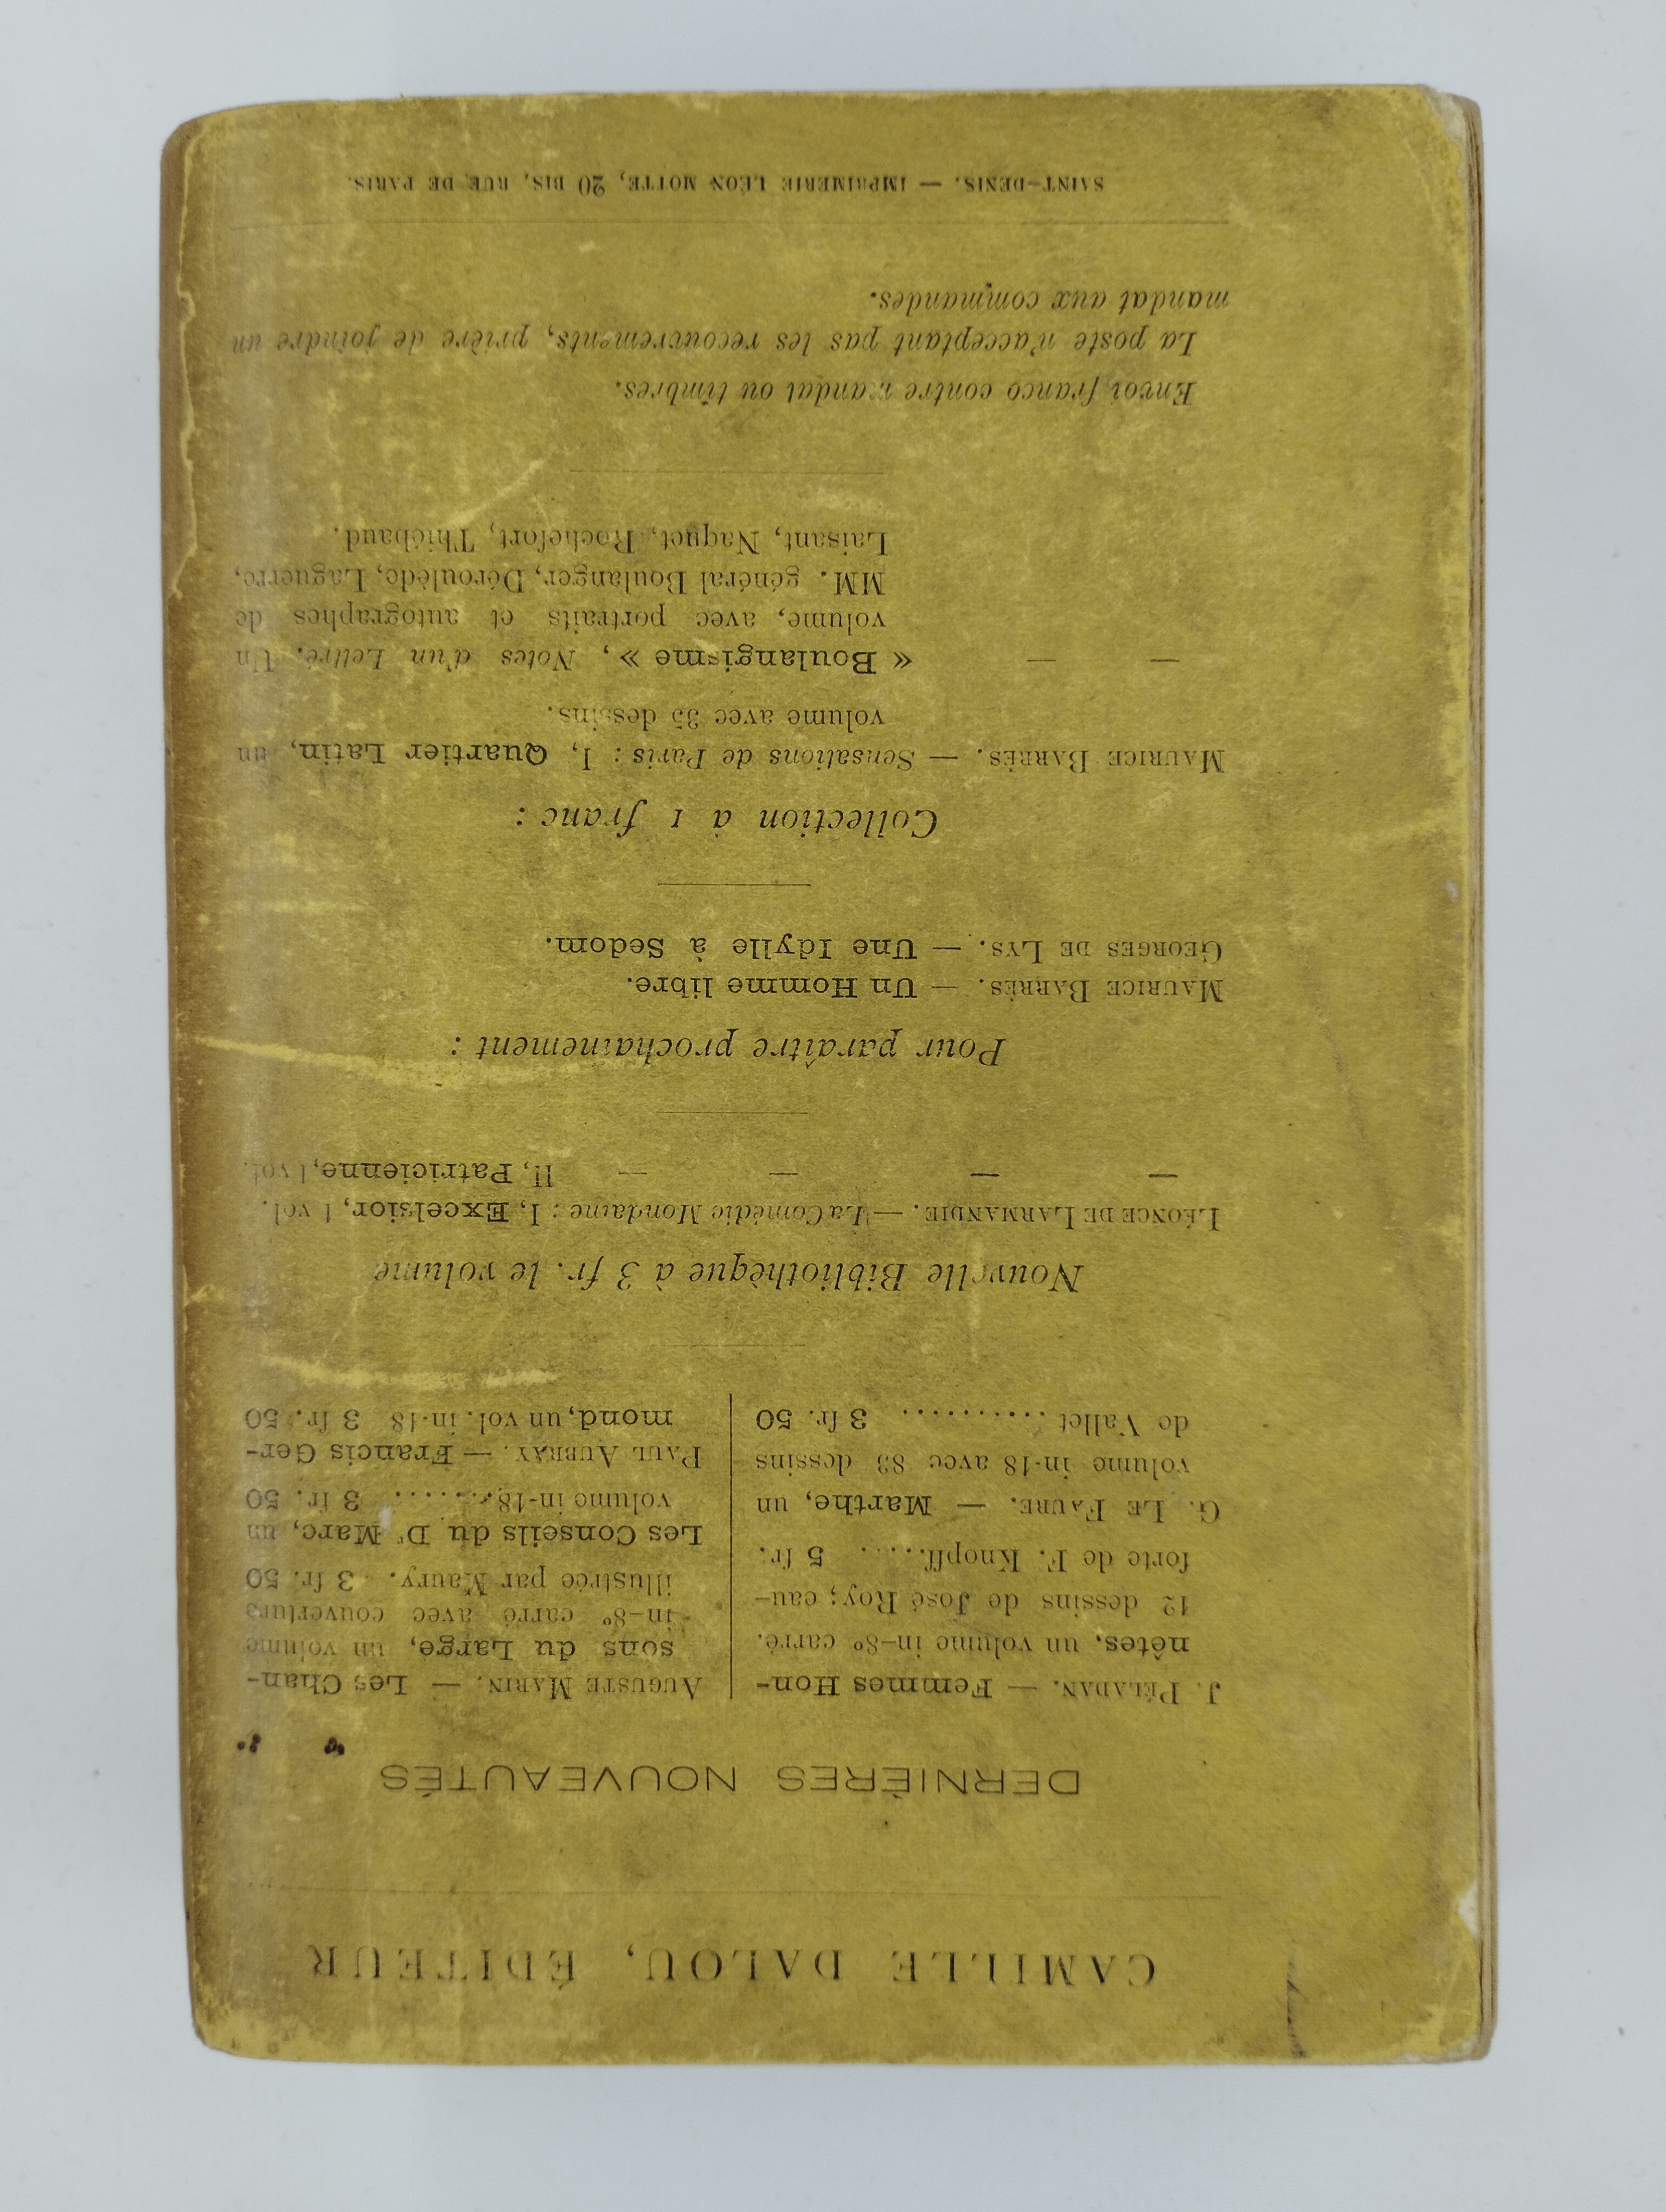 CAMILLE DALOU, ÉDITEUR
DERNIÈRES NOUVEAUTÉS
J. PÉLADAN. — Femmes Hon-
nêtes, un volume in-8º carré.
12 dessins de José Roy; eau-
forte de F. Knopff..... 5 fr.
G. LE FAURE. — Marthe, un
volume in-18 avec 83 dessins
de Vallet .......... 3 fr. 50
AUGUSTE MARIN. — Les Chan-
sons du Large, un volume
in-8º carré avec couverture
illustrée par Maury. 3 fr. 50
Les Conseils du Dr Marc, un
volume in-18....... 3 fr. 50
PAUL AUBRAY. — Francis Ger-
mond, un vol. in-18 3 fr. 50
Nouvelle Bibliothèque à 3 fr. le volume
LÉONCE DE LARMANDIE. — La Comédie Mondaine : I, Excelsior, 1 vol.
— — — — II, Patricienne, 1 vol.
Pour paraître prochainement :
MAURICE BARRÈS. — Un Homme libre.
GEORGES DE LYS. — Une Idylle à Sedom.
Collection à 1 franc :
MAURICE BARRÈS. — Sensations de Paris : I, Quartier Latin, un
volume avec 35 dessins.
— — « Boulangisme », Notes d'un Lettré. Un
volume, avec portraits et autographes de
MM. général Boulanger, Déroulède, Laguerre,
Laisant, Naquet, Rochefort, Thiébaud.
Envoi franco contre mandat ou timbres.
La poste n'acceptant pas les recouvrements, prière de joindre un
mandat aux commandes.
SAINT-DENIS. — IMPRIMERIE LÉON MOTTE, 20 BIS, RUE DE PARIS.